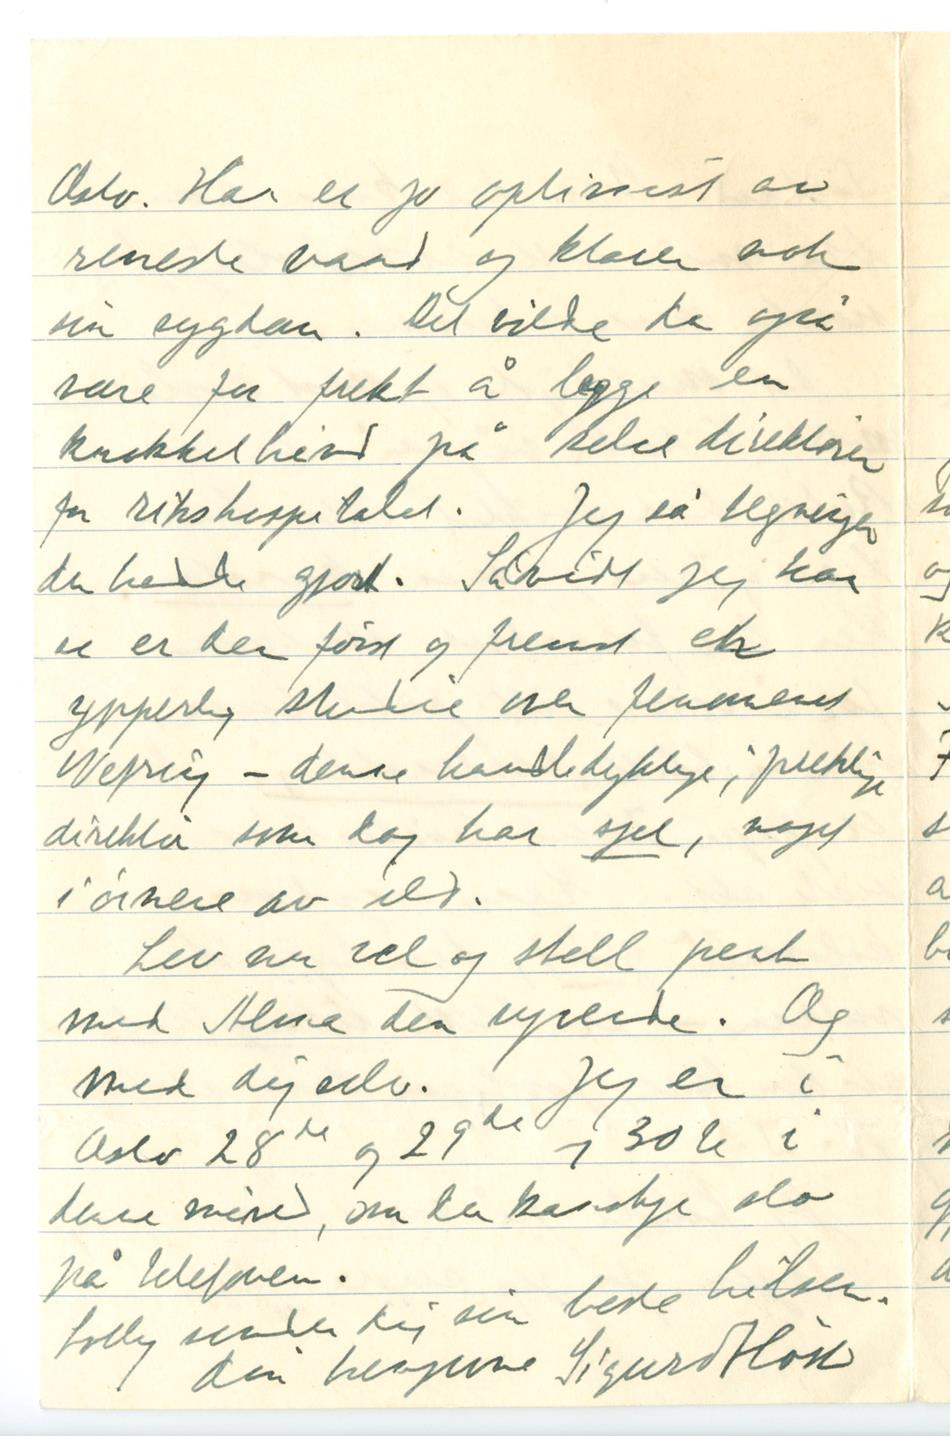 Oslo. Han er jo optimist av
reneste vand og klarer nok
sin sygdom. Det vilde da også
være for frekt å legge en
knokkelhånd på selve direktøren
for rikshospitalet. Jeg så tegningen
du hadde gjort. Såvidt jeg kan
se er den først og fremst en
ypperlig studie over fenomenet
Wefring – denne handledyktige,
direktør som dog har sjel, noget
i øinene av ild.
Lev nu vel og stell pent
med Alma den syvende. Og
med dig selv. Jeg er i
Oslo 28de og 29de og 30te i
denne måned, om du kanskje slo
på telefonen.
Lolly sender dig sin beste hilsen.
din hengivne Sigurd Høst